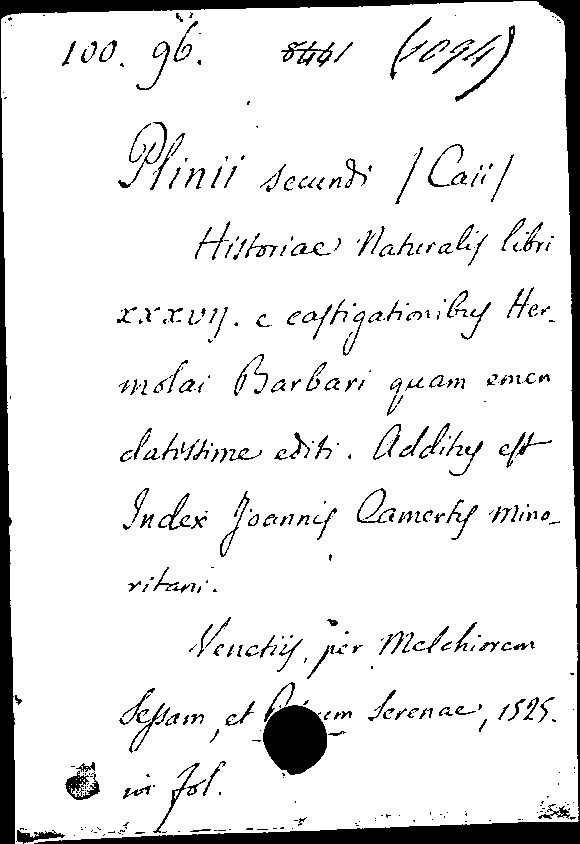 100. 96. 8441 (1094)
Plinii secundi / Caii /
Historiae Naturalis libri
XXXVIJ. c castigationibus Her-
molai Barbari quam emen
datissime editi. Additus est
Index Joannis Camertis Mino-
ritani.
Venetiis, per Melchiorem
Sessam, et Serenae, 1525.
in fol.